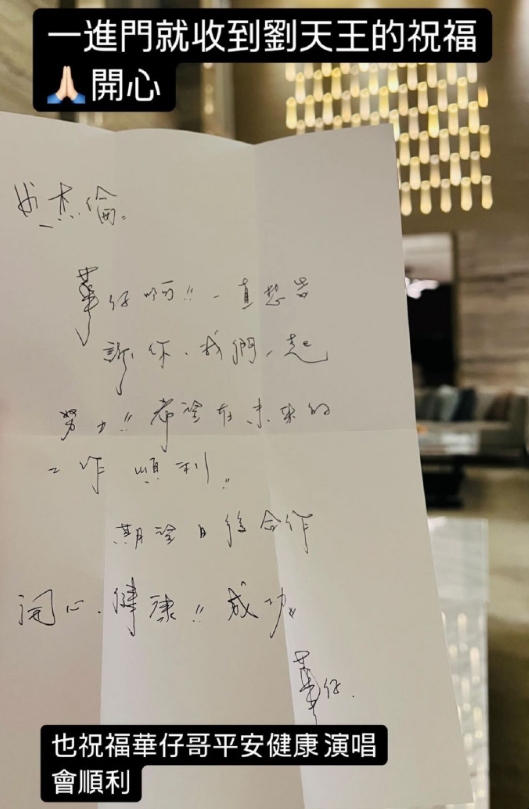 一進門就收到劉天王的祝福
🙏🏻開心
杰倫。
華仔啊!! 一直想告
訴你、我們一起
努力!! 希望在未來的
工作順利!!
期望日後合作
開心、健康!! 成功!!
華仔.
也祝福華仔哥平安健康 演唱
會順利